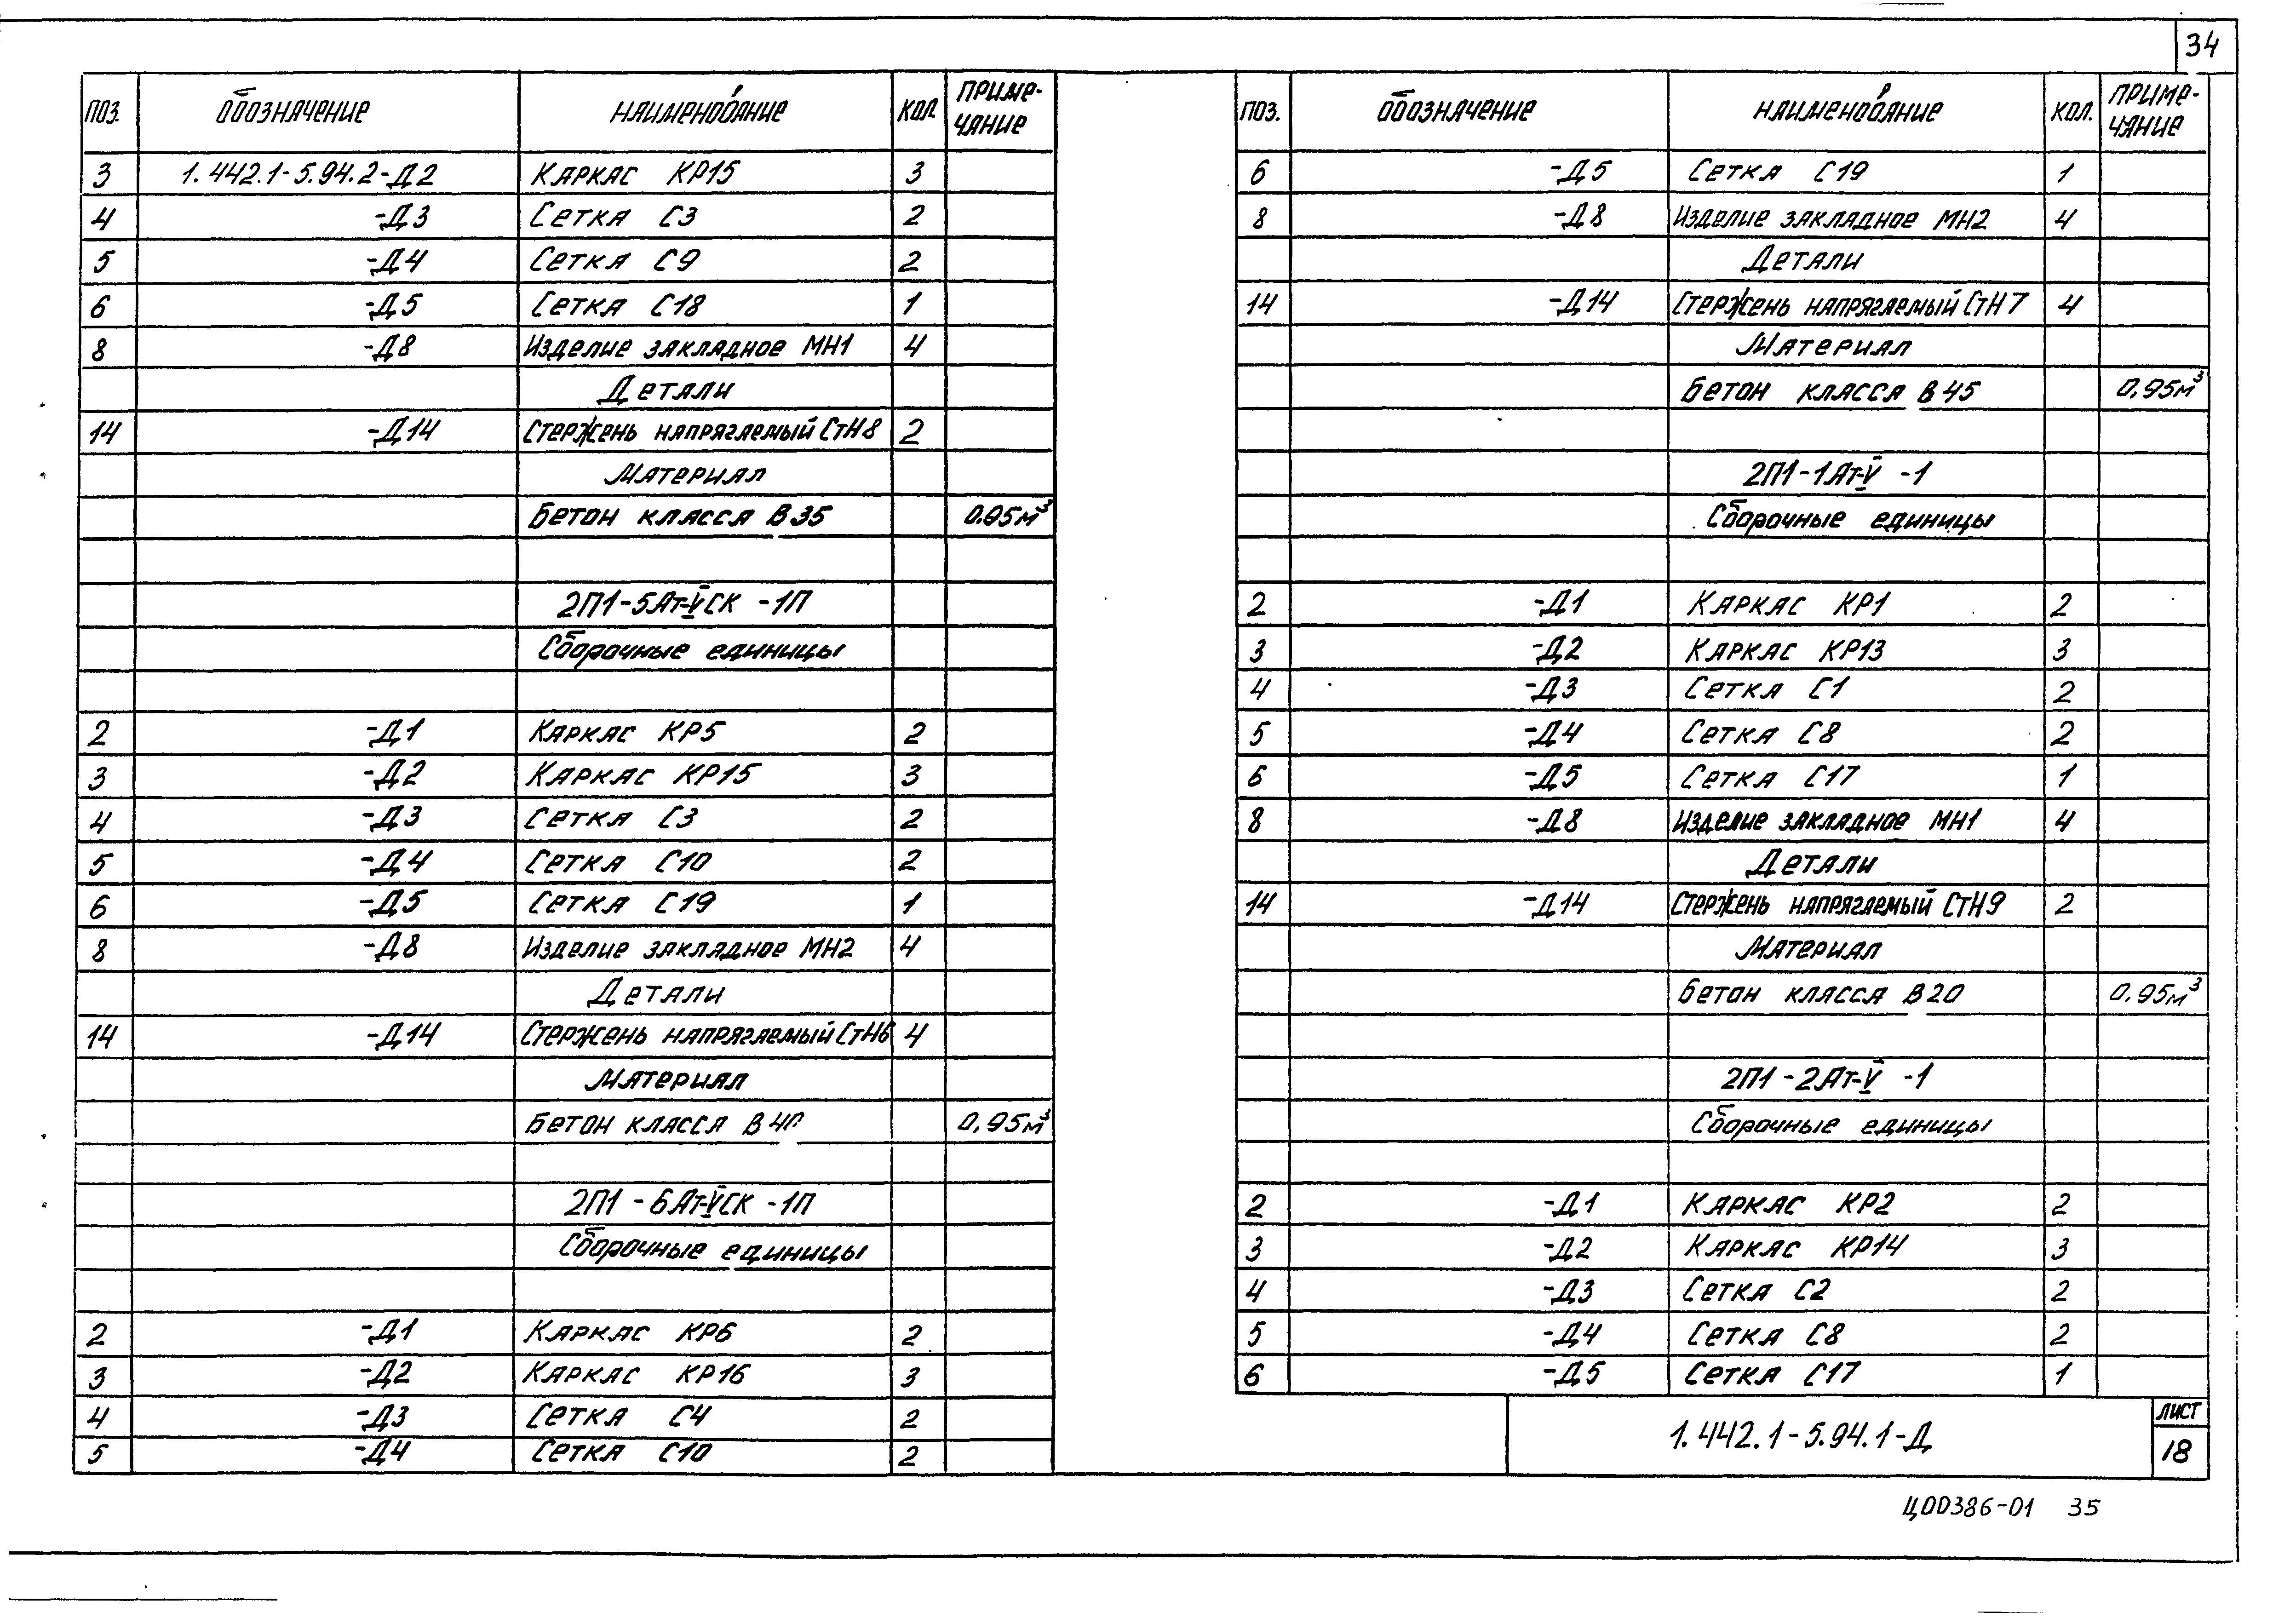 34
ПОЗ. ОБОЗНАЧЕНИЕ НАИМЕНОВАНИЕ КОЛ. ПРИМЕ-ЧАНИЕ
3 1.442.1-5.94.2-Д2 Каркас КР15 3
4 -Д3 Сетка С3 2
5 -Д4 Сетка С9 2
6 -Д5 Сетка С18 1
8 -Д8 Изделие закладное МН1 4
Детали
14 -Д14 Стержень напрягаемый СтН8 2
Материал
Бетон класса В35 0.95м³
2П1-5Ат-VСК -1П
Сборочные единицы
2 -Д1 Каркас КР5 2
3 -Д2 Каркас КР15 3
4 -Д3 Сетка С3 2
5 -Д4 Сетка С10 2
6 -Д5 Сетка С19 1
8 -Д8 Изделие закладное МН2 4
Детали
14 -Д14 Стержень напрягаемый СтН6 4
Материал
Бетон класса В40 0,95м³
2П1 - 6Ат-VСК -1П
Сборочные единицы
2 -Д1 Каркас КР6 2
3 -Д2 Каркас КР16 3
4 -Д3 Сетка С4 2
5 -Д4 Сетка С10 2
ПОЗ. ОБОЗНАЧЕНИЕ НАИМЕНОВАНИЕ КОЛ. ПРИМЕ-ЧАНИЕ
6 -Д5 Сетка С19 1
8 -Д8 Изделие закладное МН2 4
Детали
14 -Д14 Стержень напрягаемый СтН7 4
Материал
Бетон класса В45 0,95м³
2П1-1Ат-V -1
Сборочные единицы
2 -Д1 Каркас КР1 2
3 -Д2 Каркас КР13 3
4 -Д3 Сетка С1 2
5 -Д4 Сетка С8 2
6 -Д5 Сетка С17 1
8 -Д8 Изделие закладное МН1 4
Детали
14 -Д14 Стержень напрягаемый СтН9 2
Материал
Бетон класса В20 0,95м³
2П1 - 2Ат-V -1
Сборочные единицы
2 -Д1 Каркас КР2 2
3 -Д2 Каркас КР14 3
4 -Д3 Сетка С2 2
5 -Д4 Сетка С8 2
6 -Д5 Сетка С17 1
1.442.1-5.94.1-Д
ЛИСТ
18
Ц00386-01 35